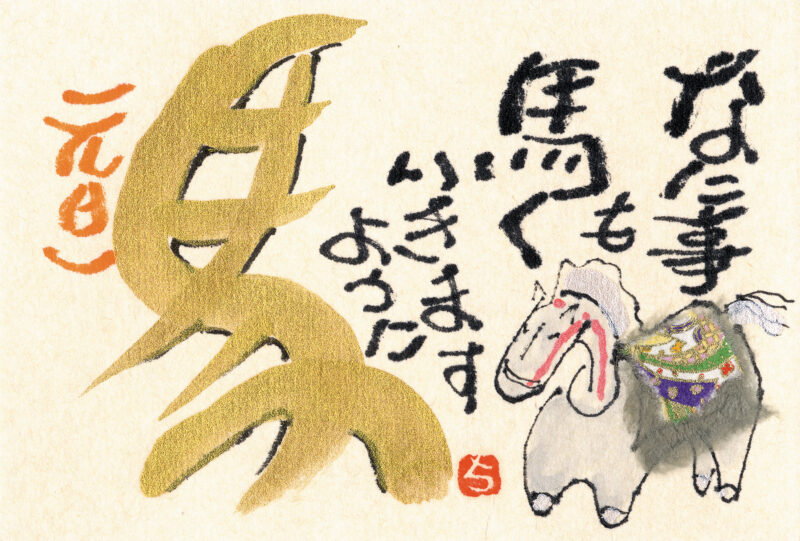 なに事
も
馬く
いきます
ように
馬
（元日）